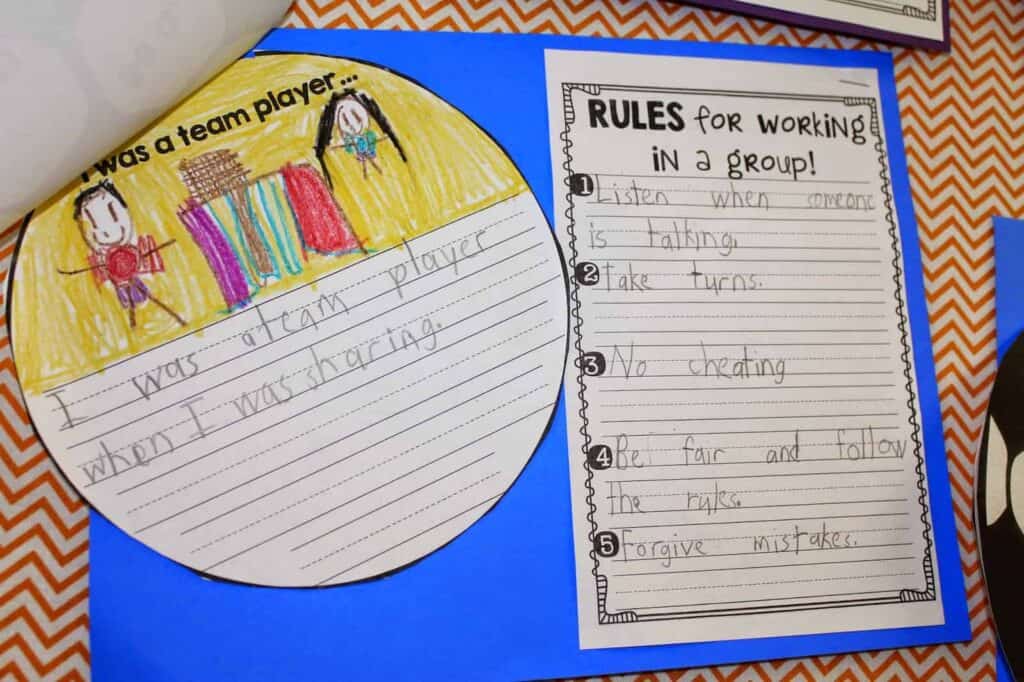 I was a team player...
I was a team player
when I was sharing.
RULES for working
in a group!
1 Listen when someone
is talking.
2 Take turns.
3 No cheating
4 Be fair and follow
the rules.
5 Forgive mistakes.